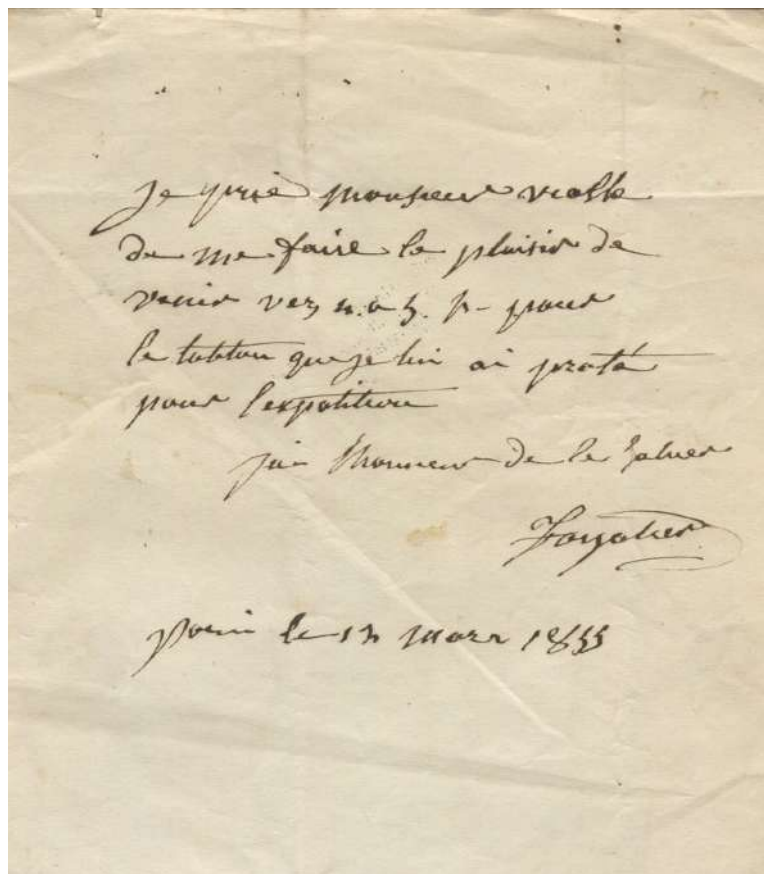 je prie monsieur violle
de me faire le plaisir de
venir vers 4. a 5. h- pour
le tableau que je lui ai preté
pour l'exposition
j'ai l'honneur de le saluer
Foyatier
paris le 13 mars 1855